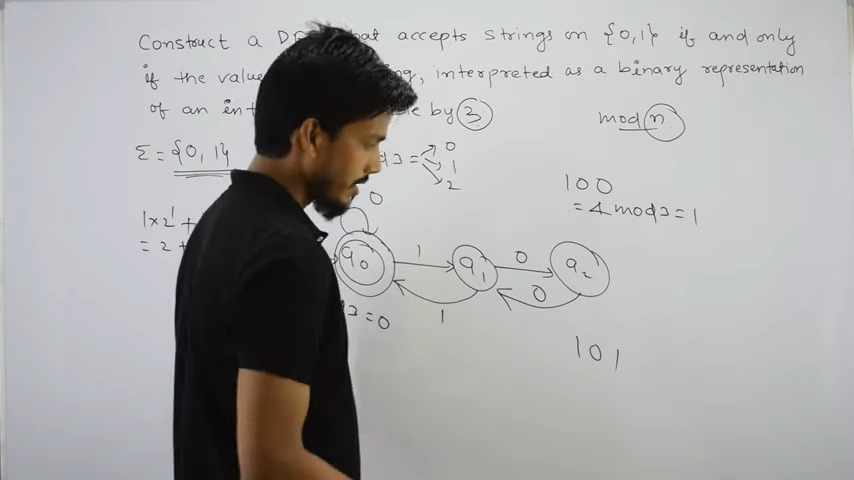 Construct a that accepts strings on {0,1} if and only
if the value interpreted as a binary representation
of an by 3
mod n
Σ = {0,1}
3 = 0
1
2
100
= 4 mod 3 = 1
1×2¹ +
= 2 +
0
q0 1 q1 0 q2
0
3 = 0
1
101